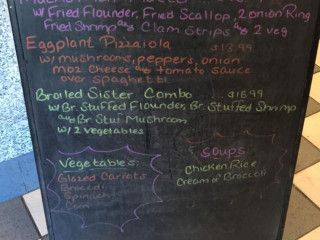 w/Fried Flounder, Fried Scallop, 2 onion Ring
Fried Shrimp and Clam Strips and 2 veg
Eggplant Pizzaiola $13.99
w/mushrooms, peppers, onion
moz cheese and tomato sauce
over spaghetti
Broiled Sister Combo ... $15.99
w/Br. Stuffed Flounder, Br. Stuffed Shrimp
and Br Stuf Mushroom
w/2 vegetables
Vegetables:
Glazed Carrots
Broccoli
Spinach
Corn
Soups
Chicken Rice
Cream of Broccoli